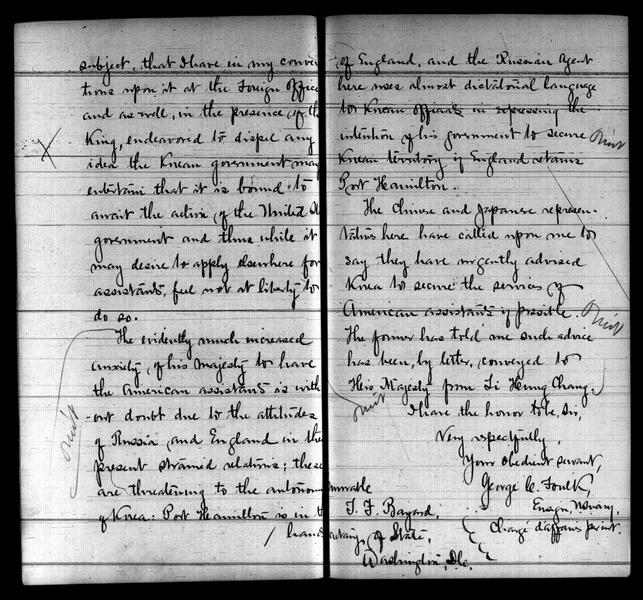 subject, that I have in my conver
tions upon it at the Foreign Office
and as well, in the presence of th
King, endeavored to dispel any
idea the Korean government may
entertain that it is bound to
await the action of the United St
government and thus while it
may desire to apply elsewhere for
assistants, feel not at liberty to
do so.
The evidently much increased
anxiety of his Majesty to have
the American assistants is with
-out doubt due to the attitudes
of Russia and England in the
present strained relations; these
are threatening to the autonom
of Korea: Port Hamilton is in t
hand
of England, and the Russian Agent
here uses almost dictatorial language
to Korean officials in expressing the
intention of his government to secure
Korean territory if England retains
Port Hamilton.
The Chinese and Japanese represen-
tatives here have called upon me to
say they have urgently advised
Korea to secure the services of
American assistants if possible.
The former has told me such advice
has been, by letter, conveyed to
His Majesty from Li Hung Chang.
I have the honor to be, Sir,
Very respectfully,
Your obedient servant,
George C. Foulk,
Ensign, U.S. Navy,
Chargé d'affaires
norable
T. F. Bayard,
cretary of State,
Washington, D.C.
omit
omit
omit
omit